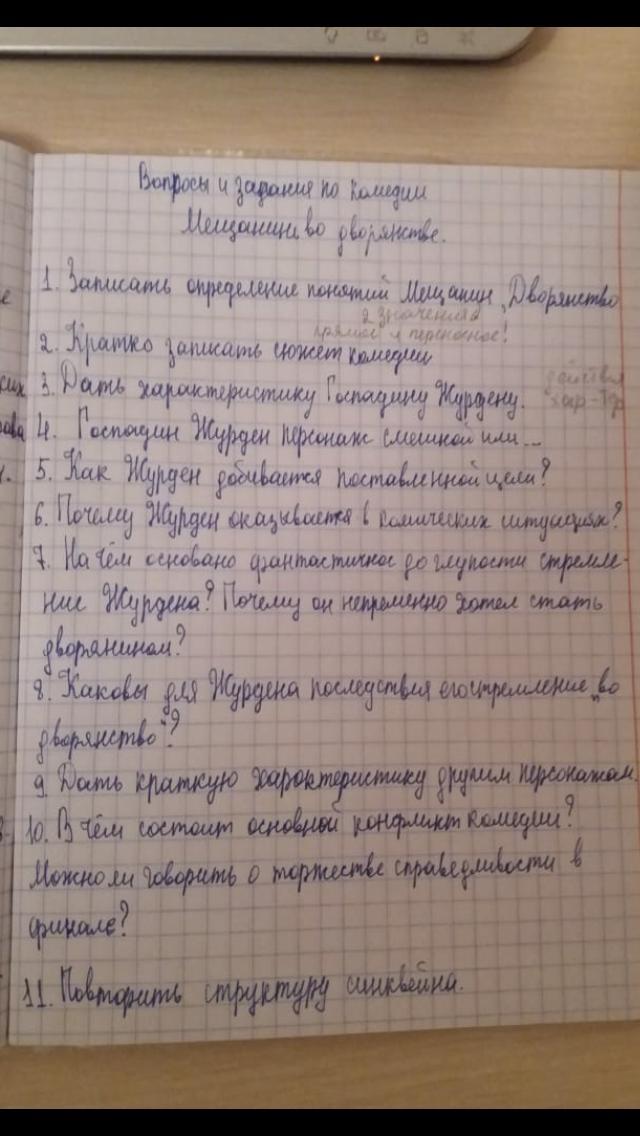 Вопросы и задания по комедии
Мещанин во дворянстве.
1. Записать определение понятий Мещанин, Дворянство
2 значения
прямое и переносное!
2. Кратко записать сюжет комедии
3. Дать характеристику Господину Журдену.
действия
хар-тер
4. Господин Журден персонаж смешной или...
5. Как Журден добивается поставленной цели?
6. Почему Журден оказывается в комических ситуациях?
7. На чём основано фантастичное до глупости стремле-
ние Журдена? Почему он непременно хотел стать
дворянином?
8. Каковы для Журдена последствия его стремление „во
дворянство"?
9. Дать краткую характеристику другим персонажам.
10. В чём состоит основной конфликт комедии?
Можно ли говорить о торжестве справедливости в
финале?
11. Повторить структуру синквейна.